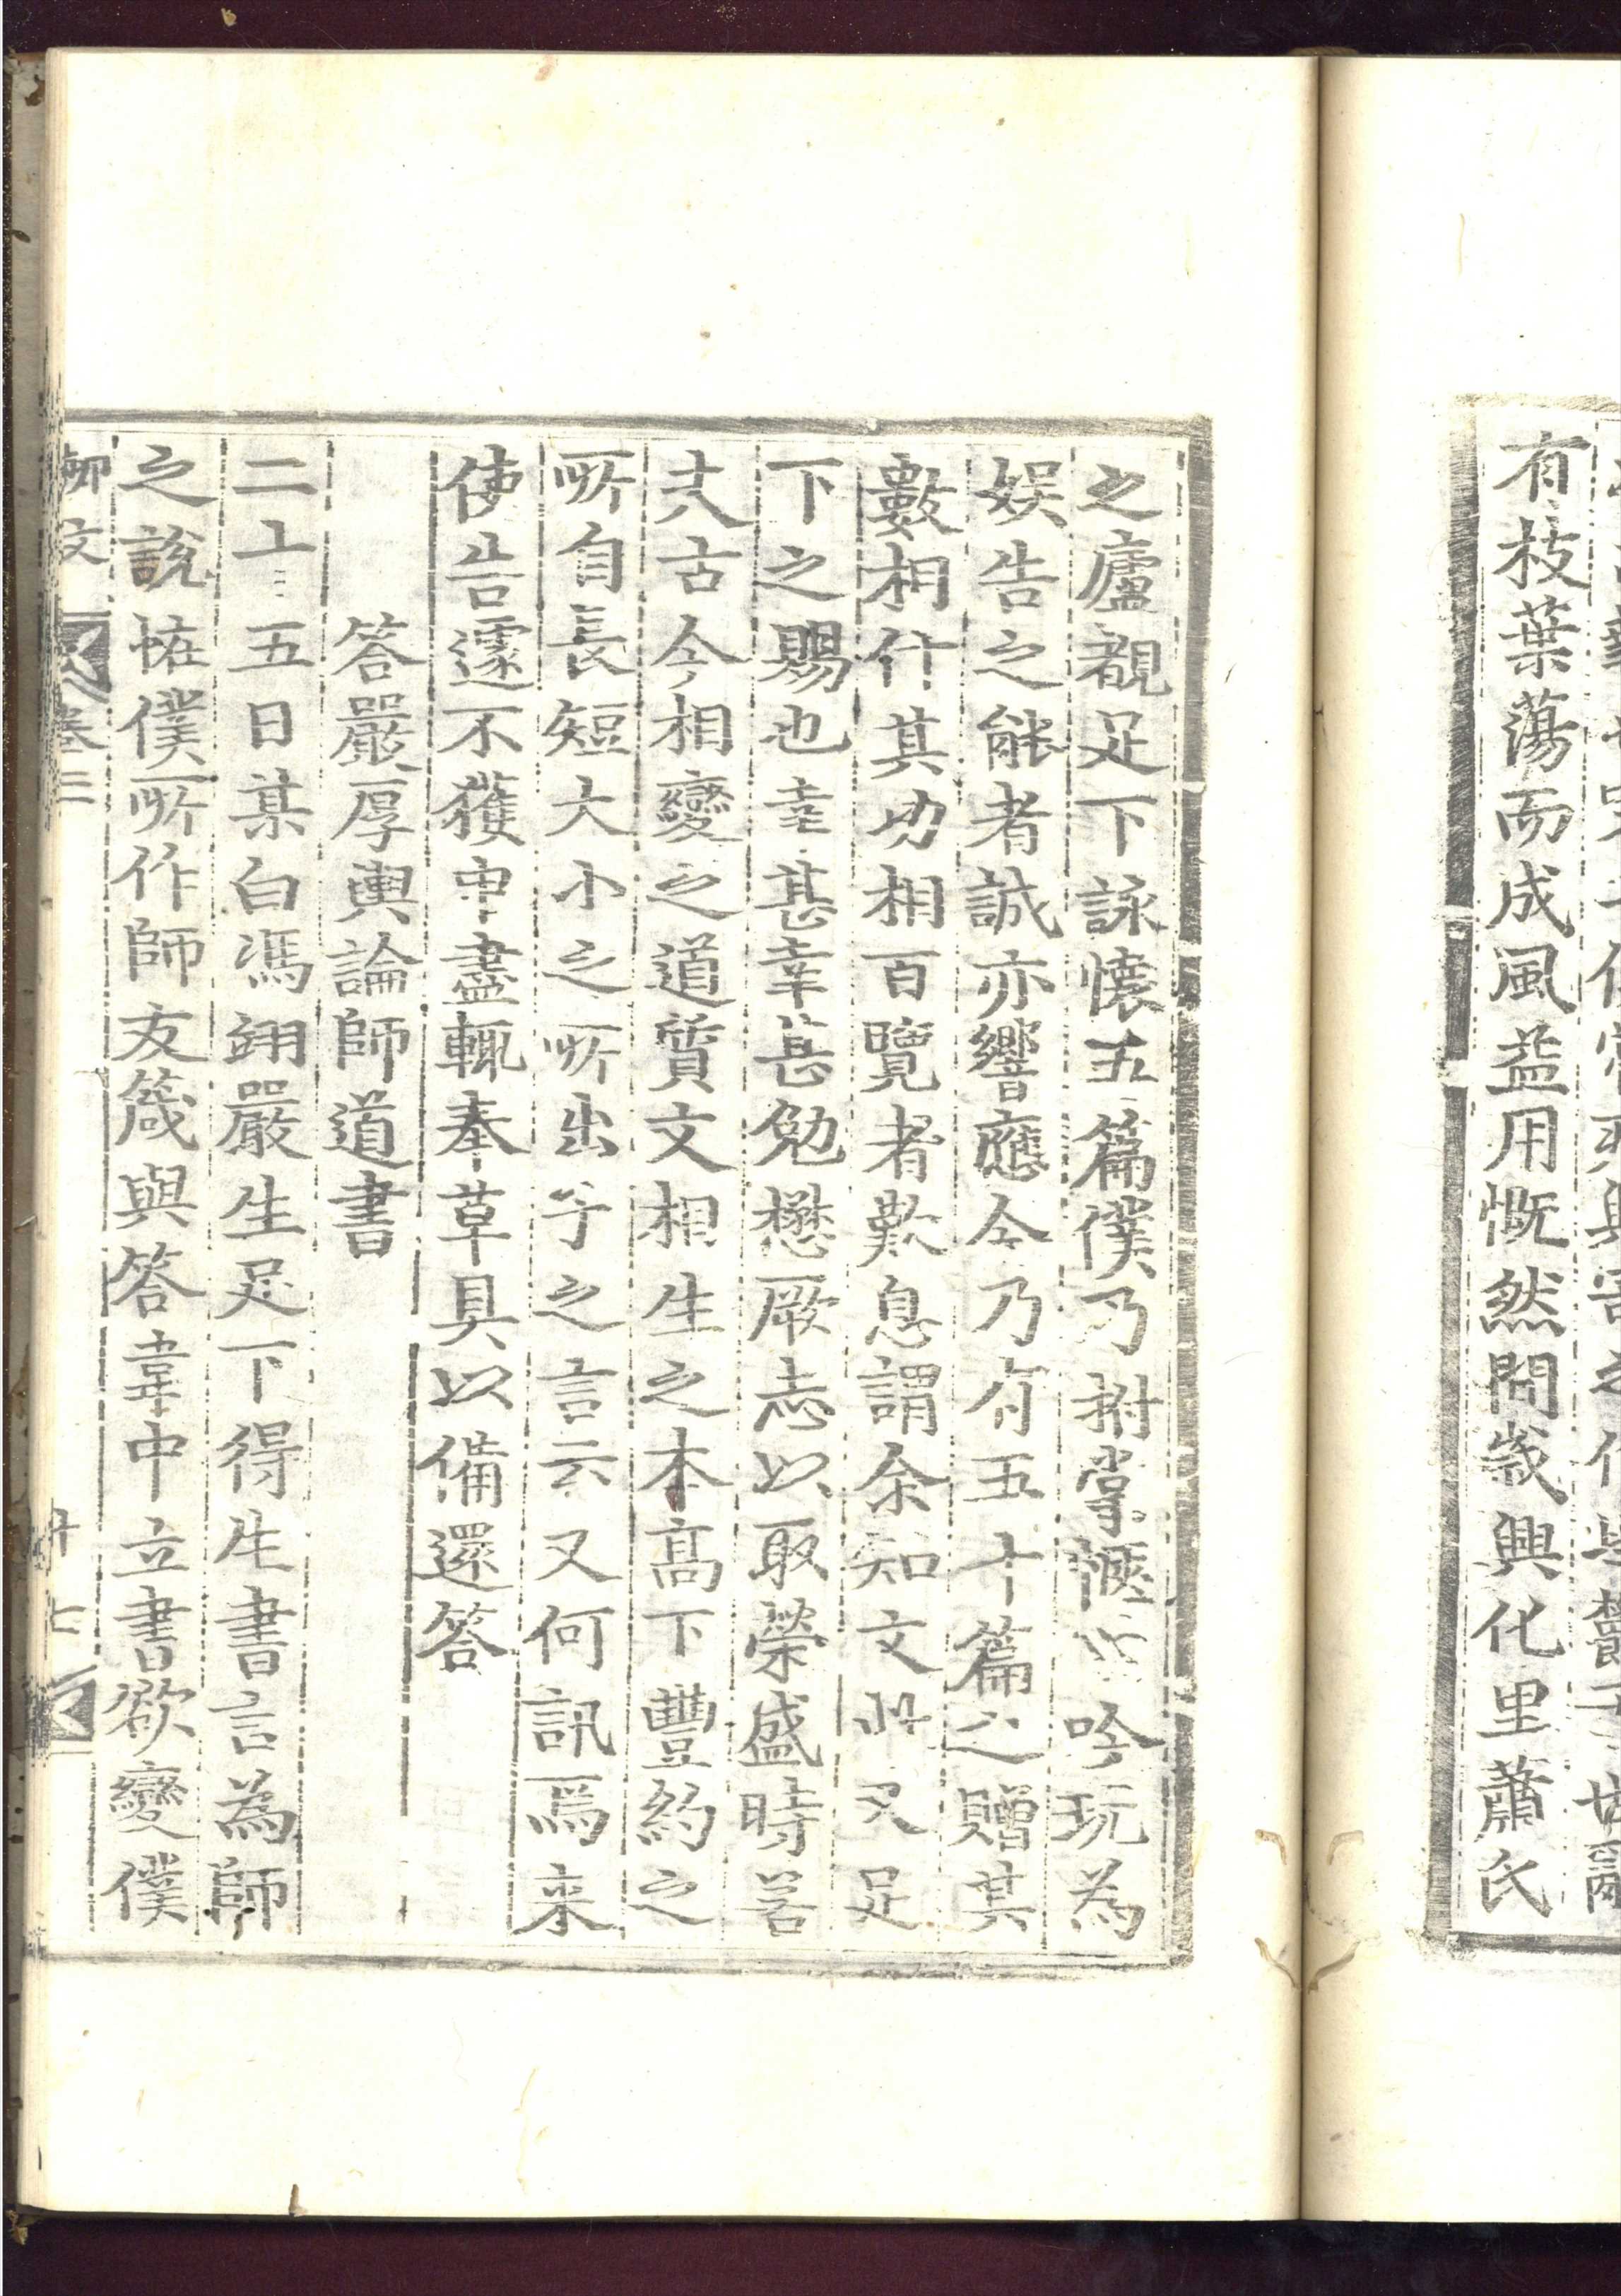 有枝葉蕩而成風益用慨然間歲興化里蕭氏
之廬覩足下詠懷五篇僕乃拊掌愜心吟玩為
娛告之能者誠亦響應今乃有五十篇之贈其
數相什其功相百覽者歎息謂余知文此又足
下之賜也幸甚幸甚勉懋厥志以取榮盛時若
夫古今相變之道質文相生之本高下豐約之
所自長短大小之所出子之言云又何訊焉来
使告遽不獲申盡輒奉草具以備還答
答嚴厚輿論師道書
二十五日某白馮翊嚴生足下得生書言為師
之說恠僕所作師友箴與答韋中立書欲變僕
柳文 卷三 廿七